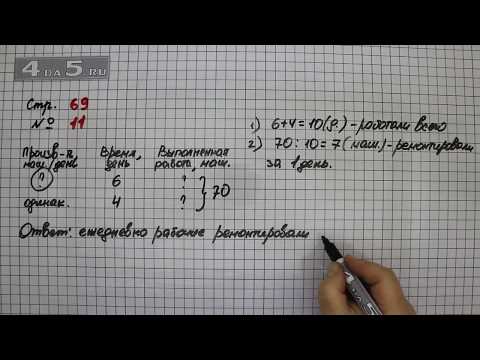 4DA5.RU
Стр. 69
№ 11
Произв-ть, Время, Выполненная
маш./день день работа, маш.
? 6 ?
одинак. 4 ? 70
1) 6+4=10(д.)-работали всего
2) 70:10=7(маш.)-ремонтировали
за 1 день.
Ответ: ежедневно рабочие ремонтировали